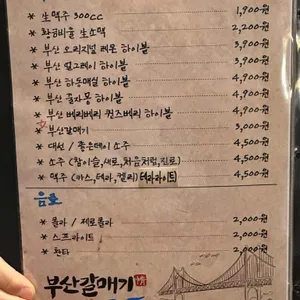 * 生맥주 300cc 1,900원
* 황금비율 生소맥 2,200원
* 부산 오리지널 레몬 하이볼 3,900원
* 부산 얼그레이 하이볼 4,900원
* 부산 하동매실 하이볼 4,900원
* 부산 꿀자몽 하이볼 4,900원
* 부산 베리베리 퀸즈베리 하이볼 4,900원
* 부산갈매기 3,000원
* 대선 / 좋은데이 소주 4,500원
* 소주 (참이슬, 새로, 처음처럼, 진로) 4,500원
* 맥주 (카스, 테라, 켈리) 테라라이트 4,500원
음료
* 콜라 / 제로콜라 2,000원
* 스프라이트 2,000원
* 환타 2,000원
부산갈매기